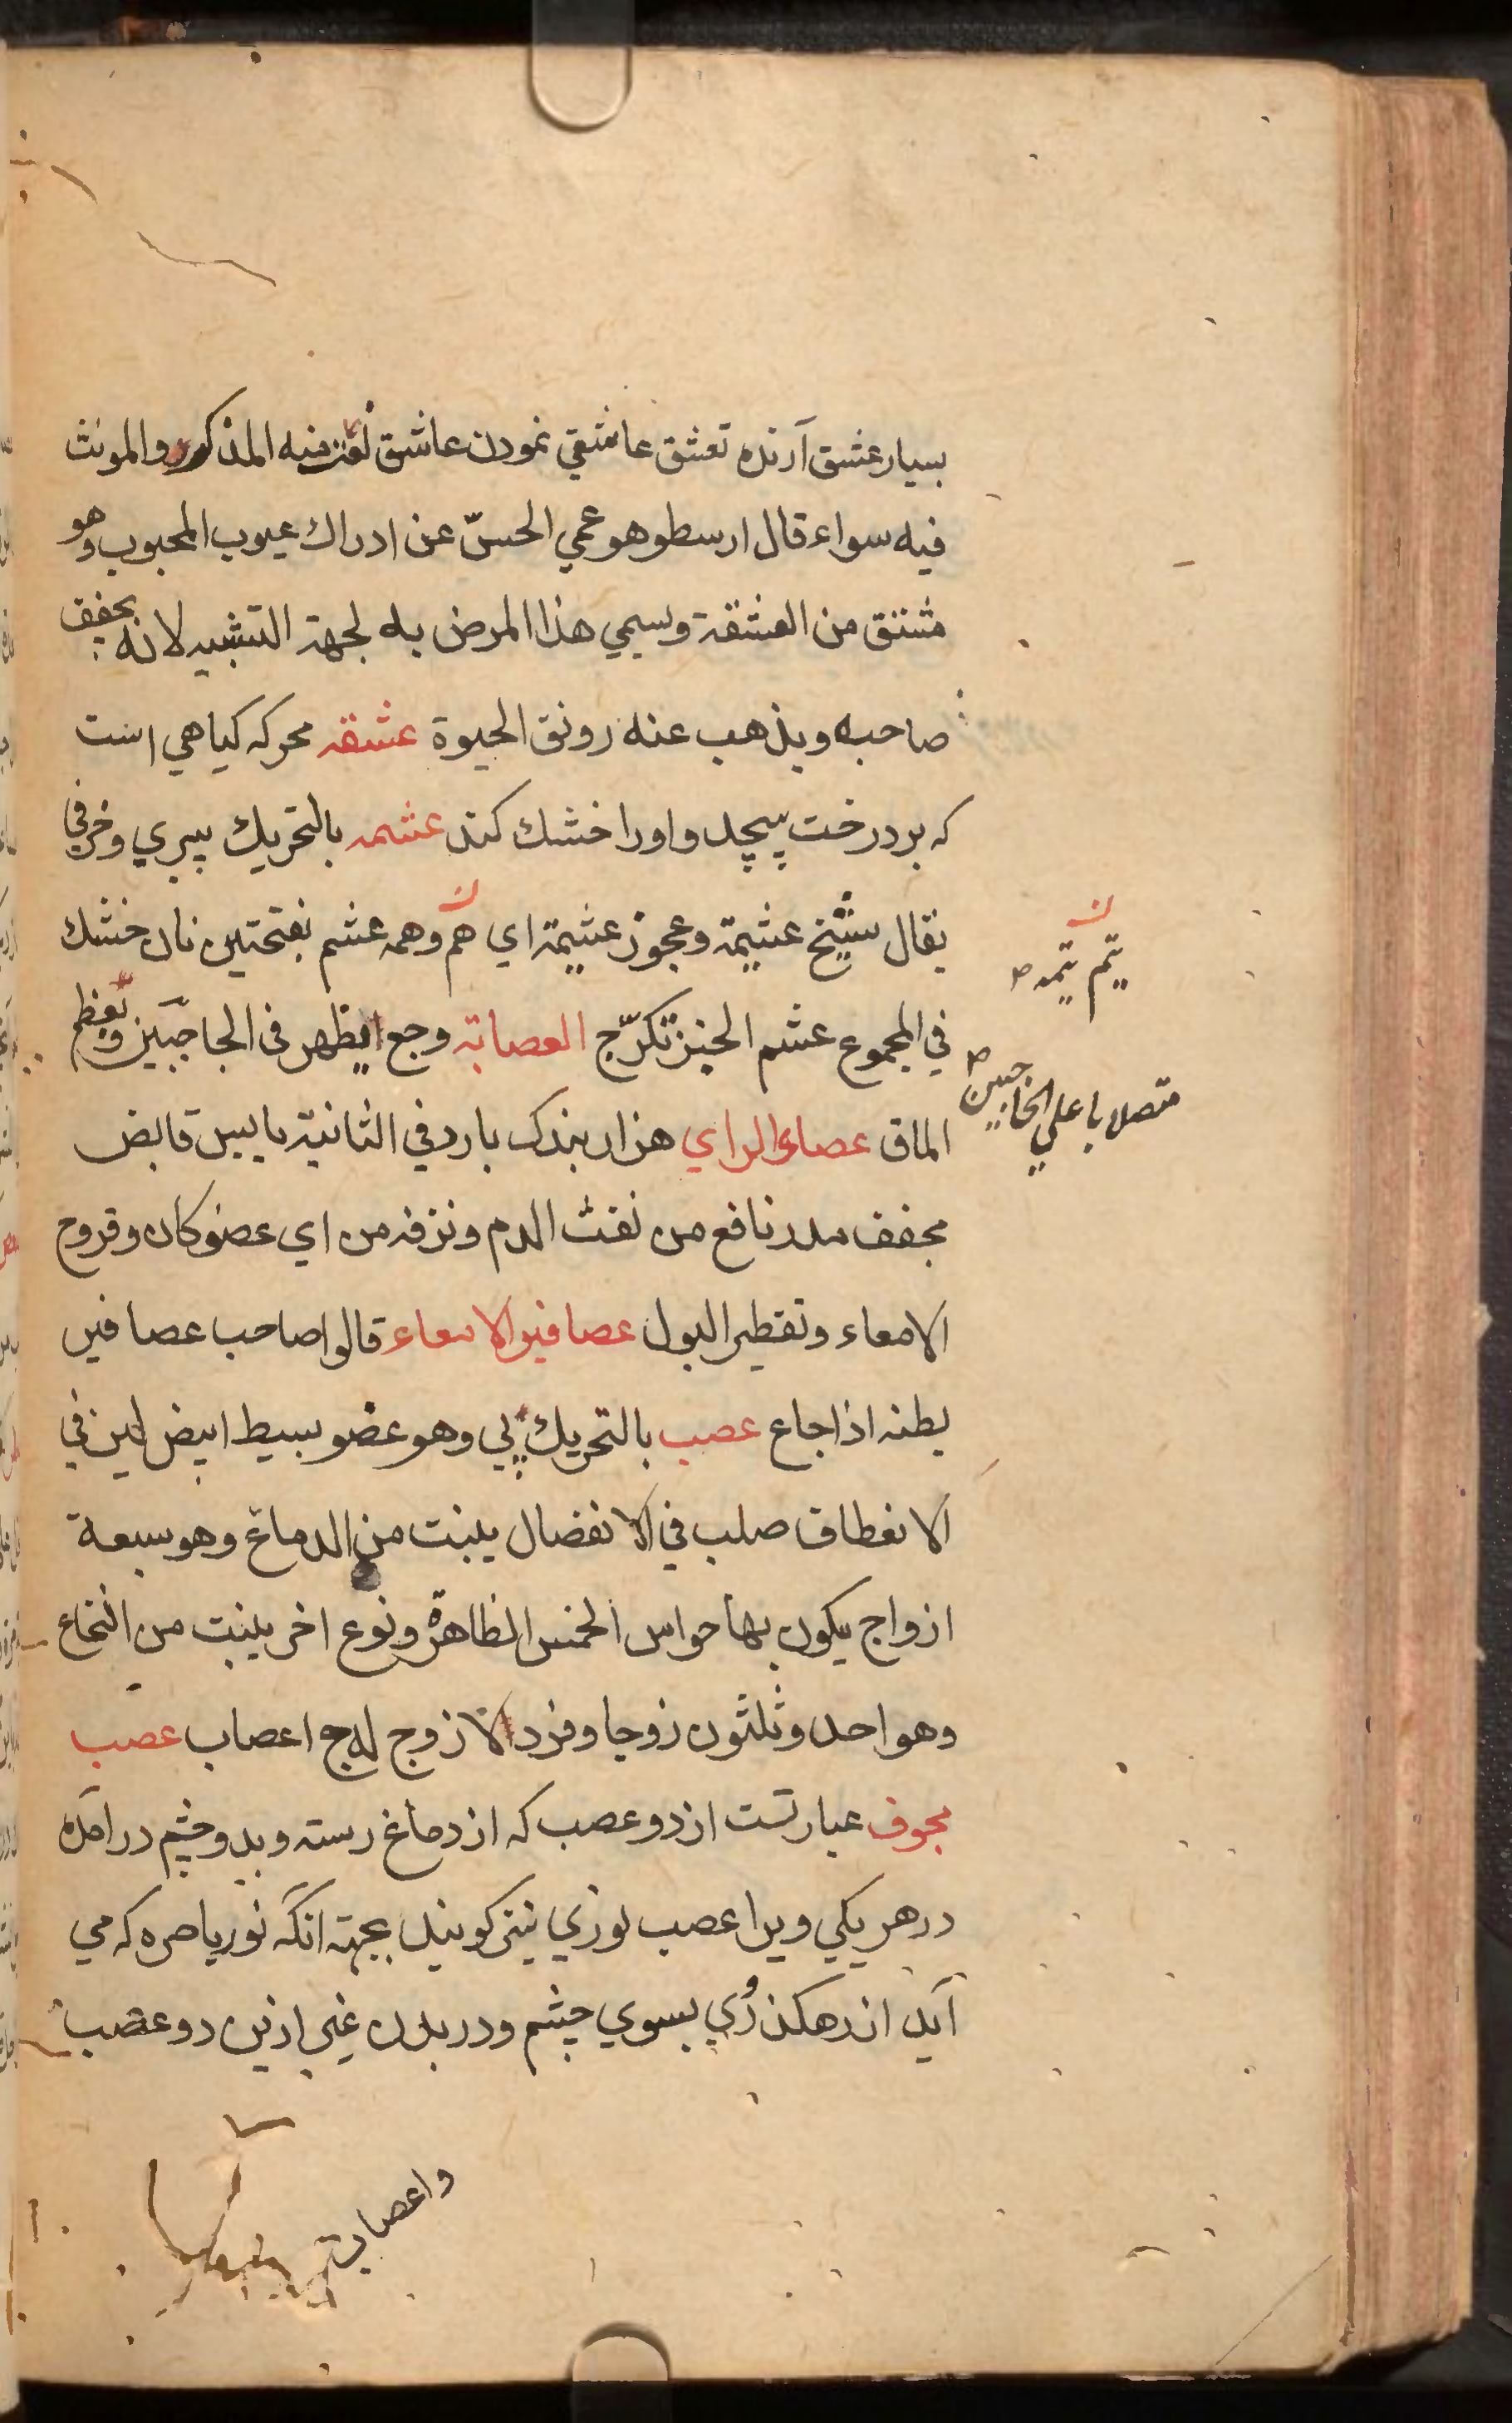 بسيار عشق آرنده تعشق عاشقي نمودن عاشق نعت فيه المذكر والمونث
فيه سواء قال ارسطو هو عمي الحسّ عن ادراك عيوب المحبوب وهو
مشتق من العشقة وسمي هذا المرض به لجهة التشبيه لانه يجفف
صاحبه ويذهب عنه رونق الحيوة عشقه محركه كياهي است
كه بر درخت پيچد واورا خشك كند عشمه بالتحريك پيري وخرفي
يقال شيخ عشيمة وعجوز عشيمة اي همّ وهمه عشم بفتحتين نان خشك
يتم يتمه ص
في المجموع عشم الخبز تكرّج العصابة وجع يظهر في الحاجبين ويعظم
متصلا باعلي الحاجبين ص
الماق عصاء الراي هزار بندك بارد في الثانية يابس قابض
مجفف مدر نافع من نفث الدم ونزفه من اي عضو كان وقروح
الامعاء وتقطير البول عصافير الامعاء قالوا صاحب عصافير
بطنه اذا جاع عصب بالتحريك پي وهو عضو بسيط ابيض لين في
الانعطاف صلب في الانفصال ينبت من الدماغ وهو سبعة
ازواج يكون بها حواس الخمس الظاهرة ونوع اخر ينبت من النخاع
وهو احد وثلثون زوجا وفرد لا زوج له ج اعصاب عصب
مجوف عبارتست از دو عصب كه از دماغ رسته وبدو چشم درامده
در هر يكي ويرا عصب نوري نيز كويند بجهة انكه نور باصره كه مي
آيد از رهكذر وي بسوي چشم ودر بدن غير ازين دو عصب
واعصاب